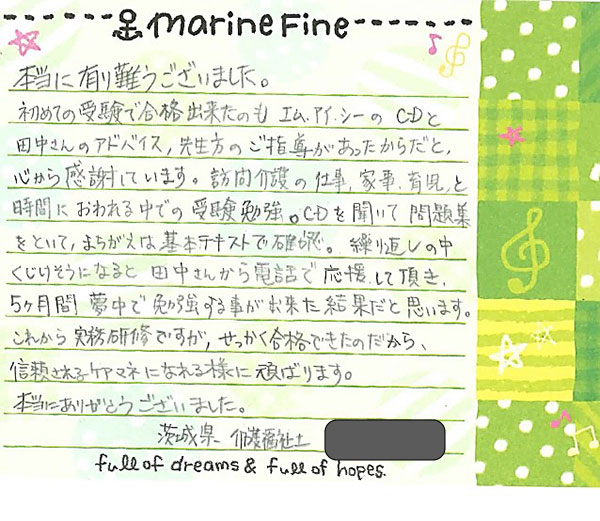 marine Fine
本当に有り難うございました。
初めての受験で合格出来たのも エム.アイ.シーの CDと
田中さんのアドバイス,先生方のご指導があったからだと,
心から感謝しています。訪問介護の仕事,家事,育児,と
時間におわれる中での受験勉強。CDを聞いて問題集
をといて,まちがえは基本テキストで確認。繰り返しの中
くじけそうになると 田中さんから電話で応援して頂き、
5ヶ月間 夢中で勉強する事が出来た結果だと思います。
これから実務研修ですが,せっかく合格できたのだから、
信頼されるケアマネになれる様に頑ばります。
本当にありがとうございました。
茨城県 介護福祉士
full of dreams & full of hopes.